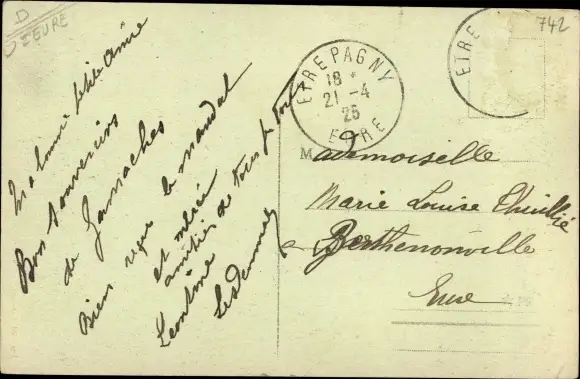 D
EURE
742
Ma bonne petite amie
Bons souvenirs
de Gamaches
Bien reçu le mandat
et merci
amitiés de tous pr tous
Léontine
ETREPAGNY
18 *
21-4
25
EURE
ETRE
Mademoiselle
Marie Louise
à Berthenonville
Eure